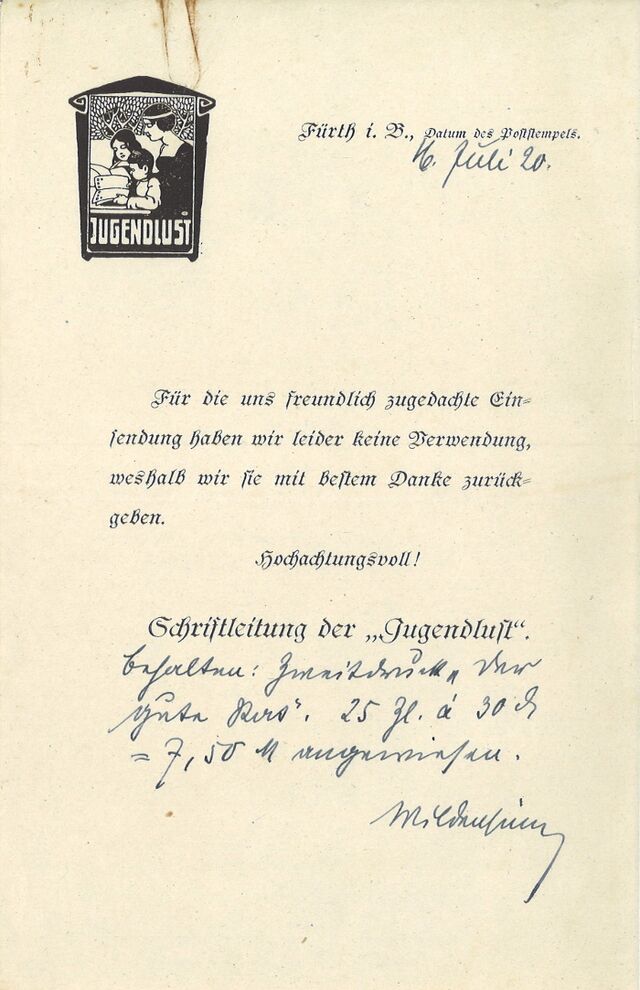 JUGENDLUST
Fürth i. B., Datum des Poststempels.
Juli 20.
Für die uns freundlich zugedachte Ein-
sendung haben wir leider keine Verwendung,
weshalb wir sie mit bestem Danke zurück-
geben.
Hochachtungsvoll!
Schriftleitung der „Jugendlust“.
behalten: Zweitdruck „Der
gute 25 Zl. à 30 ₰
= 7,50 M angewiesen.